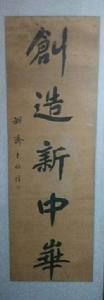 創造新中華